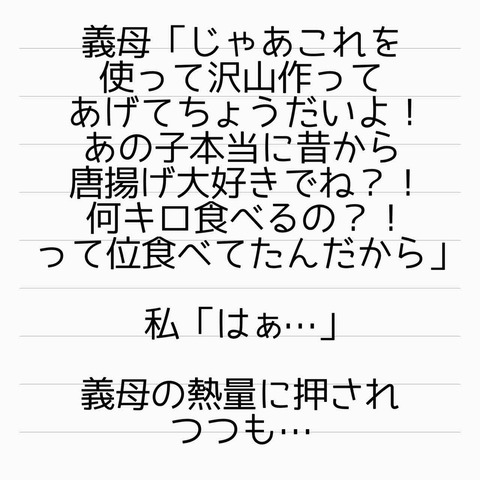 義母「じゃあこれを
使って沢山作って
あげてちょうだいよ！
あの子本当に昔から
唐揚げ大好きでね？！
何キロ食べるの？！
って位食べてたんだから」
私「はぁ…」
義母の熱量に押され
つつも…